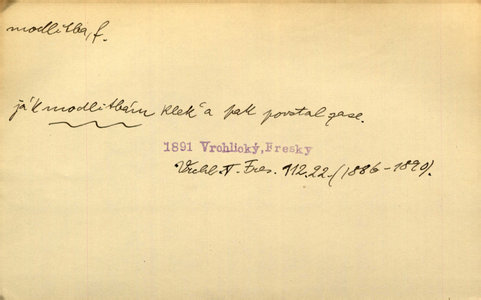 modlitba, f.
já k modlitbám klek' a pak povstal zase.
1891 Vrchlický, Fresky
Vrchl. Fres. 112.22. (1886-1890).